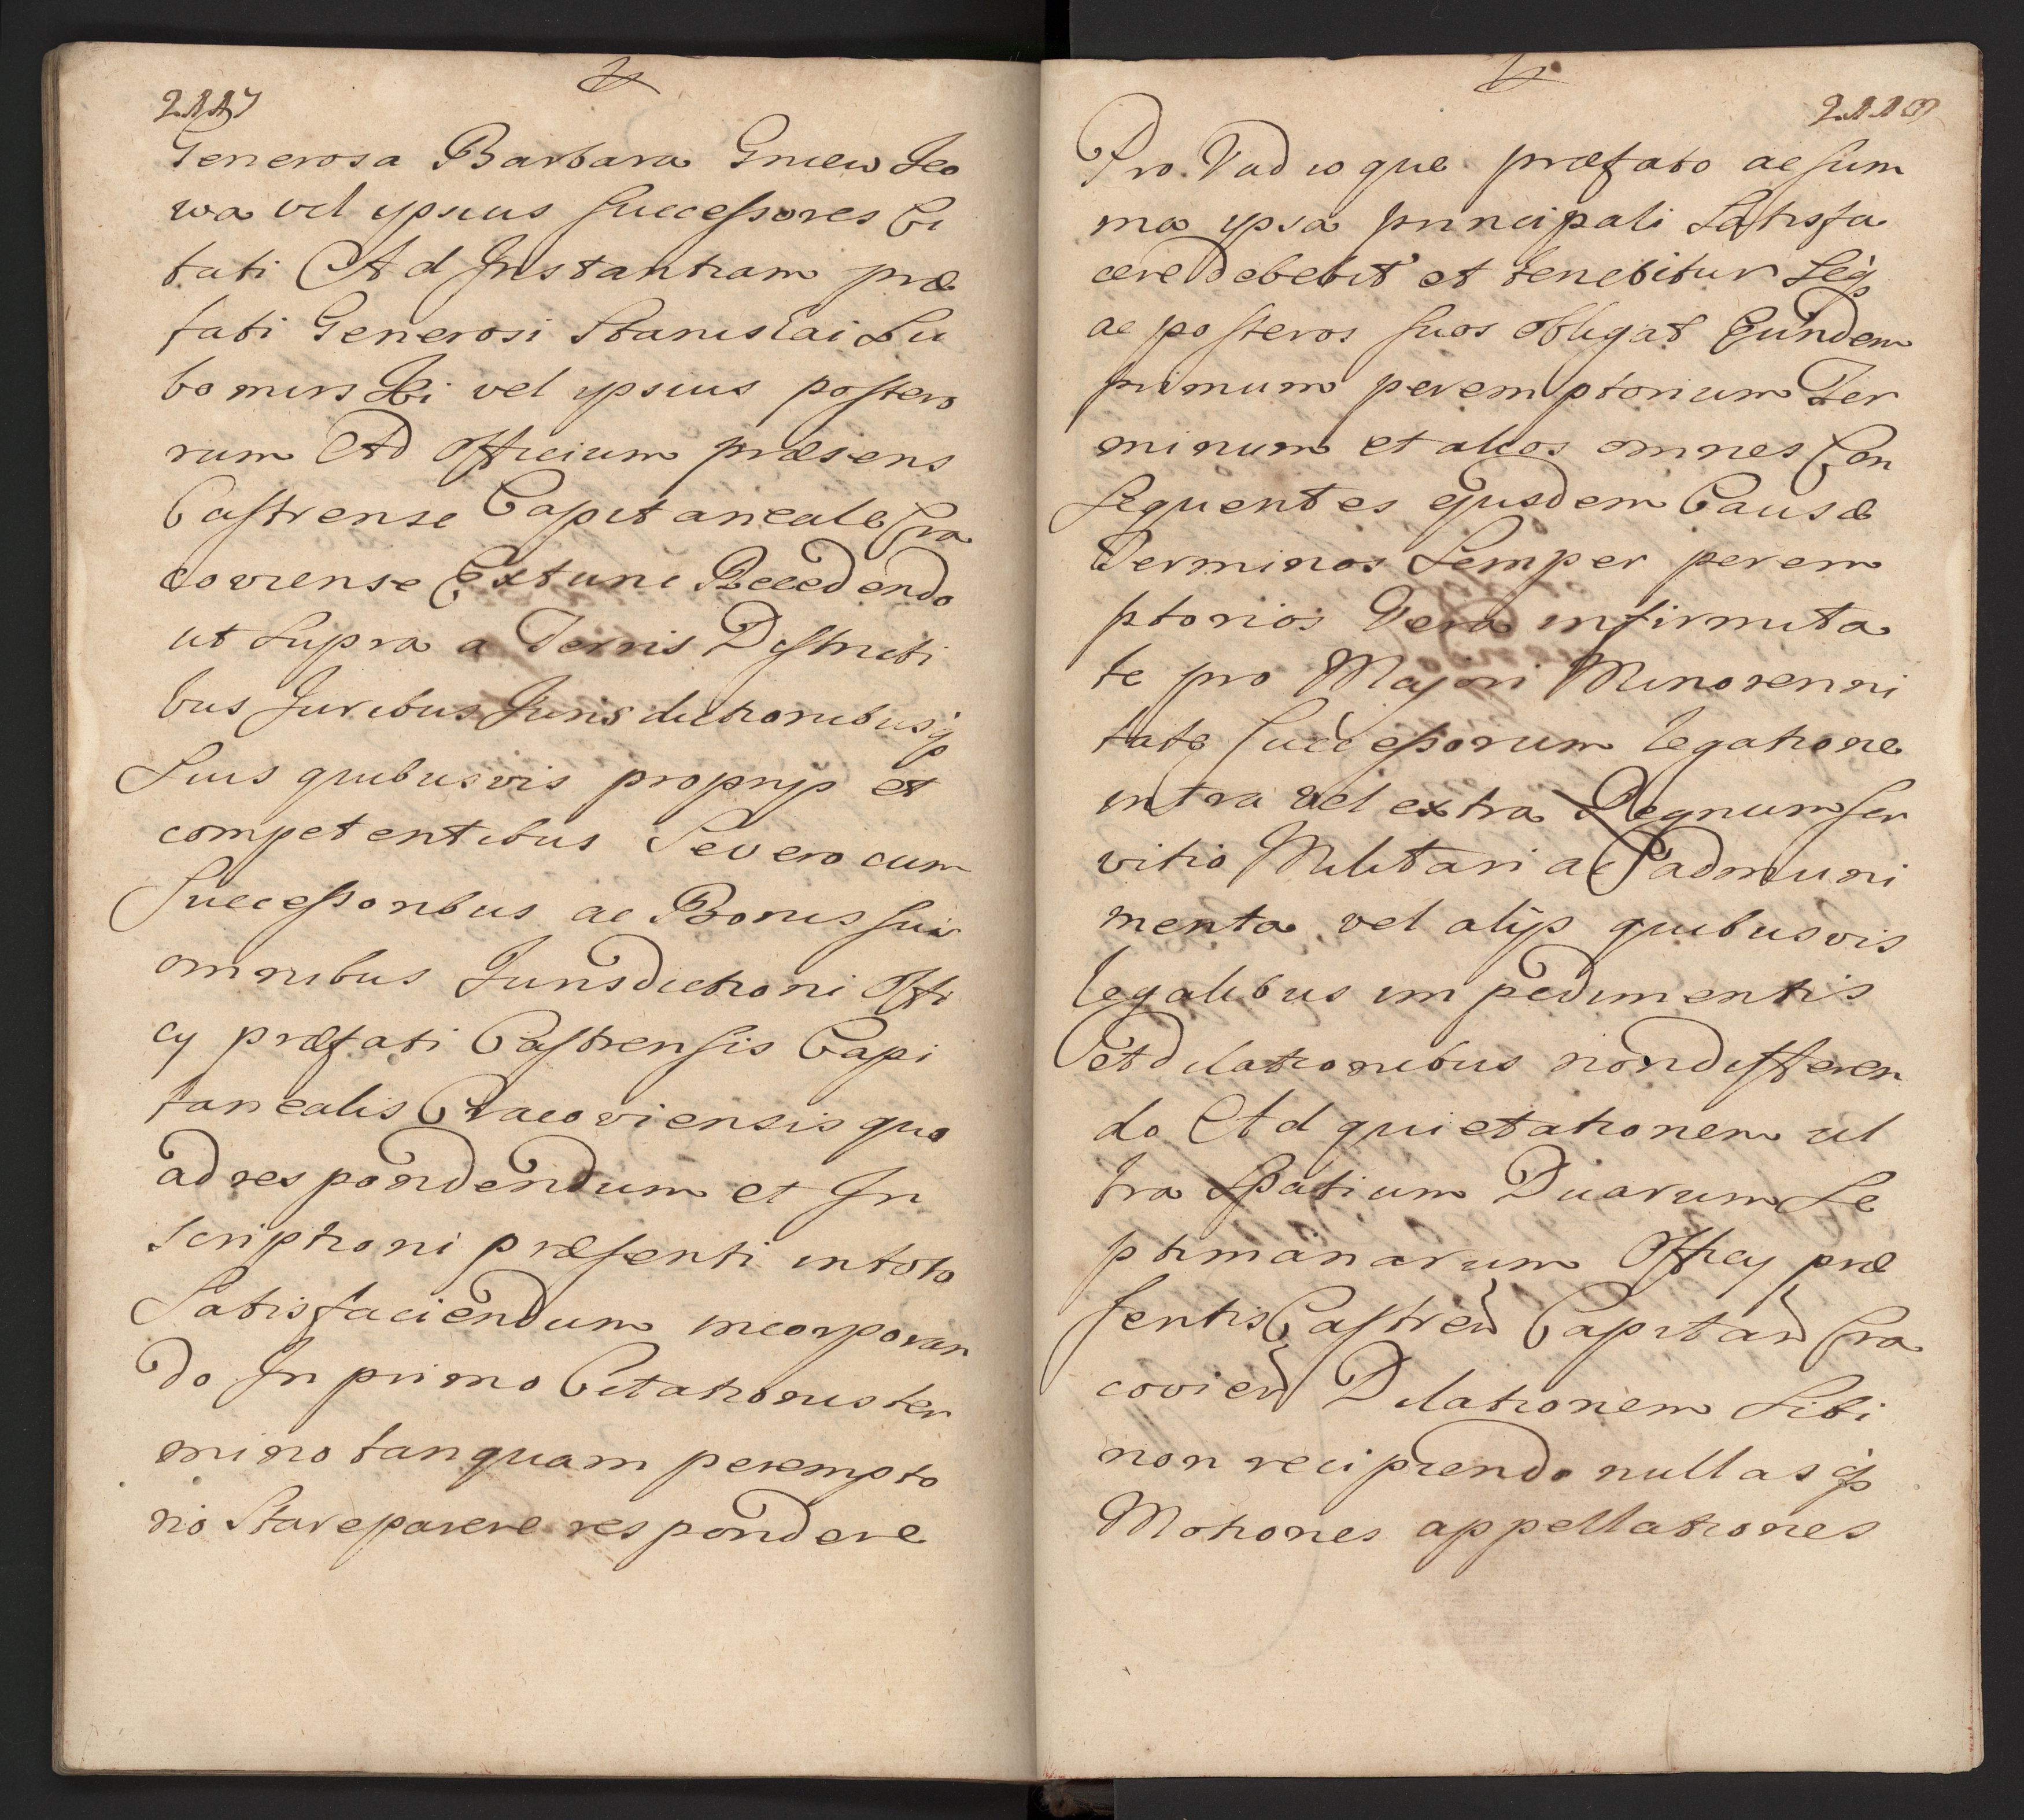 2117
Generosa Barbara Gniew Jeo
wa vel ypsius successores Ci
tati Ad Instantiam præ
fati Generosi Stanislai Lu
bomirski vel ypsius postero
rum Ad officium præsens
Castrense Capitaneale Cra
coviense Extunc Recedendo
ut Supra a Terris Districti
bus Juribus Jurisdictionibusq
Suis quibusvis proprijs et
competentibus Se vero cum
Successoribus ac Bonis suis
omnibus Jurisdictioni Offi
cy præfati Castrensis Capi
tanealis Cracoviensis quo
ad respondendum et In
scriptioni præsenti in toto
Satisfaciendum incorporan
do In primo Citationis ter
mino tanquam perempto
rio Stare parere respondere
2118
Pro Vadioque præfato ac sum
ma ypsa principali Satisfa
cere debebit et tenebitur Seq
ac posteros suos obligat Eundem
primum peremptorium Ter
minum et alios omnes Con
sequentes ejusdem Causæ
Terminos Semper perem
ptorios Vera infirmita
te pro Majori Minorenni
tate successorum legatione
intra vel extra Regnum ser
vitio Militari ac ad muni
menta vel alijs quibusvis
legalibus impedimentis
et dilationibus non differen
do Ad quietationem ul
tra Spatium Duarum Se
ptimanarum Officy præ
sentis Castren Capitan Cra
covien Dilationem Sibi
non recipiendo nullasq
Motiones appellationes